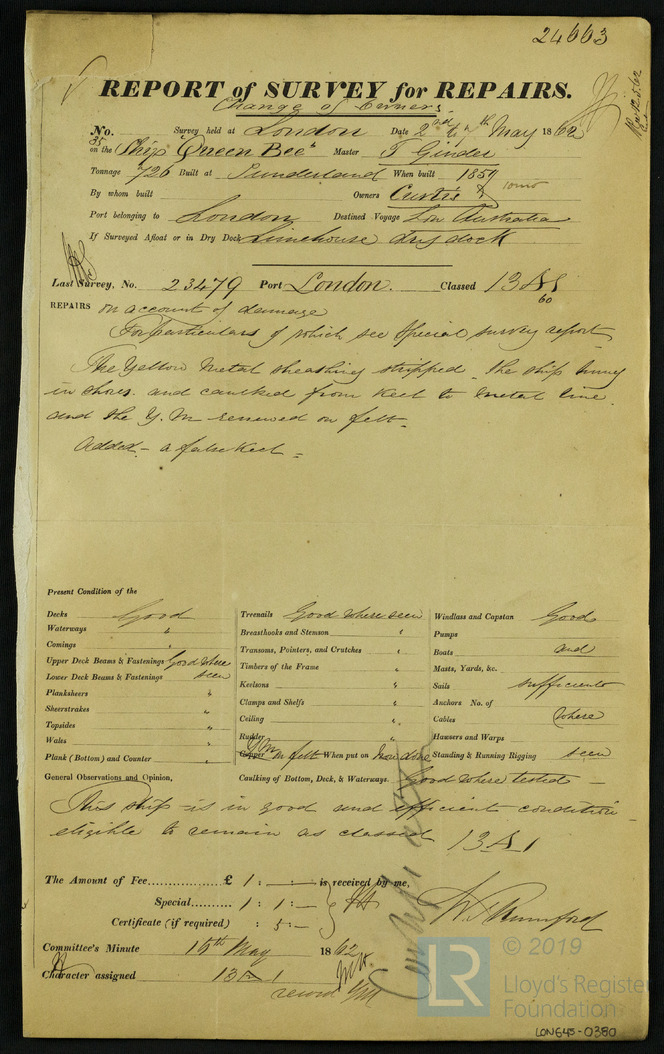 24663
REPORT of SURVEY for REPAIRS.
Change of Owners
No. Survey held at London Date 2nd & 7th May 1862
35 on the Ship "Queen Bee" Master T Ginder
Tonnage 726 Built at Sunderland When built 1859
By whom built Owners Curtis &
Port belonging to London Destined Voyage Lon Australia
If Surveyed Afloat or in Dry Dock Limehouse dry dock
Last Survey, No. 23479 Port London. Classed 13 A 1
60
REPAIRS on account of damage
For particulars of which see Special survey report
The Yellow Metal sheathing stripped. The ship hung
in shores and caulked from Keel to metal line.
and the Y.M renewed on felt.
Added - a false Keel =
Present Condition of the
Decks Good
Waterways "
Comings "
Upper Deck Beams & Fastenings Good where
Lower Deck Beams & Fastenings seen
Planksheers "
Sheerstrakes "
Topsides "
Wales "
Plank (Bottom) and Counter "
Treenails Good where seen
Breasthooks and Stemson "
Transoms, Pointers, and Crutches "
Timbers of the Frame "
Keelsons "
Clamps and Shelfs "
Ceiling "
Rudder "
Copper Y.M on felt When put on Now done
Windlass and Capstan Good
Pumps
Boats and
Masts, Yards, &c.
Sails sufficient
Anchors No. of
Cables where
Hawsers and Warps
Standing & Running Rigging seen
General Observations and Opinion, Caulking of Bottom, Deck, & Waterways. Good where tested -
This ship is in good and efficient condition
eligible to remain as classed 13 A 1
The Amount of Fee £ 1 : - : - is received by me,
Special 1 : 1 : -
Certificate (if required) : 5 : -
W. Rumford
Committee's Minute 15th May 1862
Character assigned 13 A 1
record
© 2019
LR
Lloyd's Register
Foundation
LON645-0380